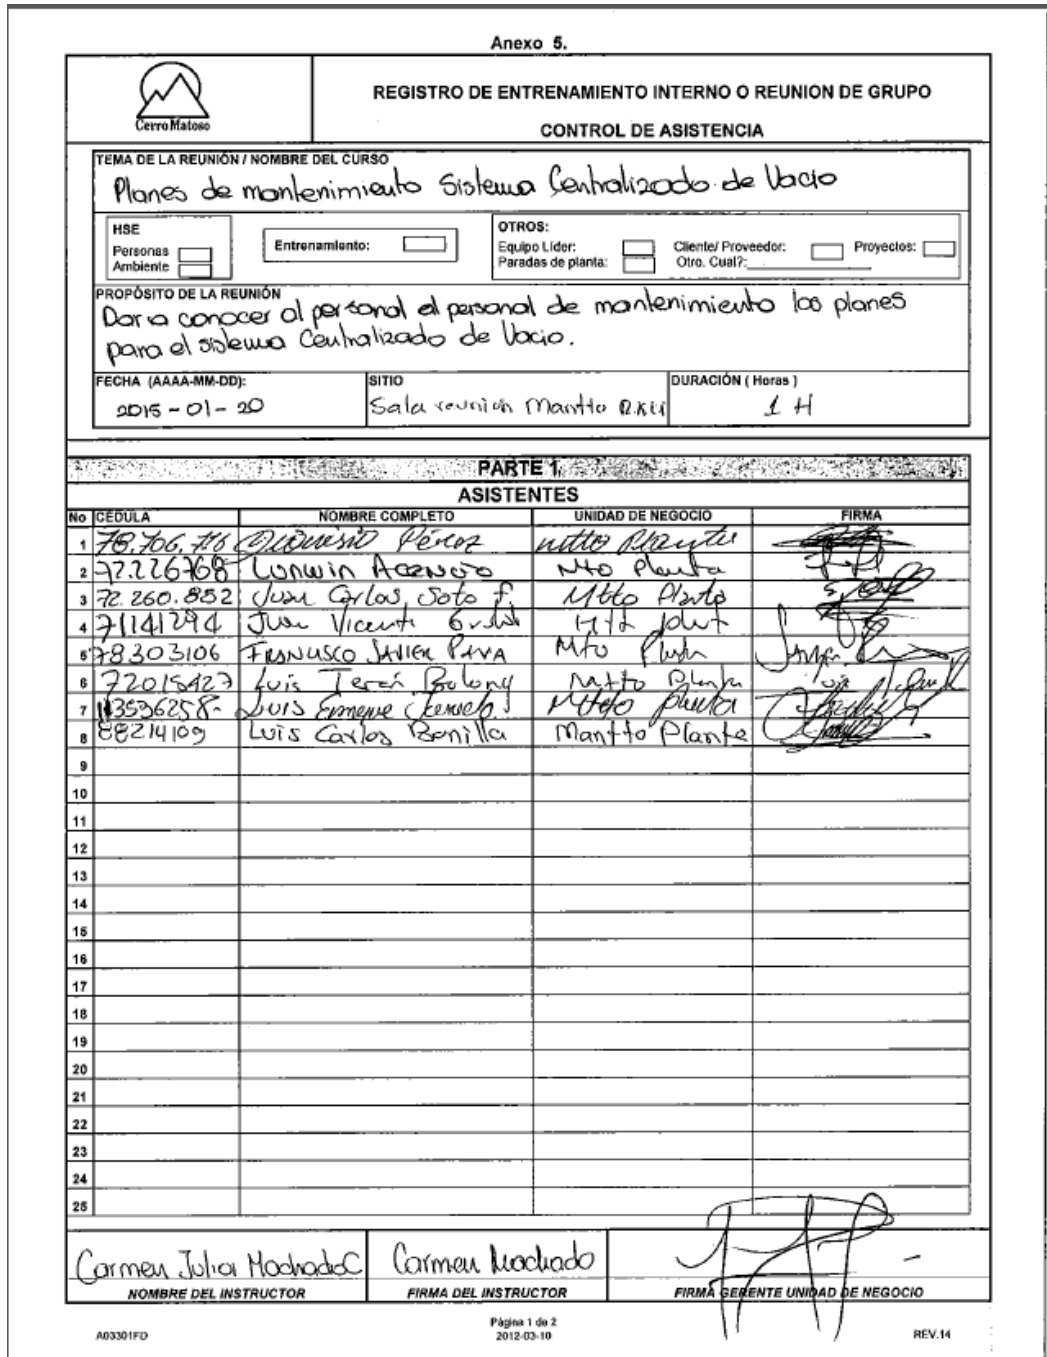 Anexo 5.
CerroMatoso
REGISTRO DE ENTRENAMIENTO INTERNO O REUNION DE GRUPO
CONTROL DE ASISTENCIA
TEMA DE LA REUNIÓN / NOMBRE DEL CURSO
Planes de mantenimiento Sistema Centralizado de Vacio
HSE
Personas
Ambiente
Entrenamiento:
OTROS:
Equipo Líder: Cliente/ Proveedor: Proyectos:
Paradas de planta: Otro. Cual?:
PROPÓSITO DE LA REUNIÓN
Dar a conocer al personal el personal de mantenimiento los planes
para el sistema Centralizado de Vacio.
FECHA (AAAA-MM-DD): SITIO DURACIÓN ( Horas )
2015-01-20 Sala reunión Mantto 1 H
PARTE 1.
ASISTENTES
No CÉDULA NOMBRE COMPLETO UNIDAD DE NEGOCIO FIRMA
1 78.706.716 Dionisio Pérez mtto Planta
2 72.226768 Mto Planta
3 72.260.852 Juan Carlos Soto F. Mtto Planta
4 71141294 Juan Vicente
5 78303106 FRANCISCO JAVIER PAVA Mto
6 72015427 Luis Terán Mtto Planta
7 Luis Mtto planta
8 88214109 Luis Carlos Bonilla Mantto Planta
9
10
11
12
13
14
15
16
17
18
19
20
21
22
23
24
25
Carmen Julia Machado C Carmen Machado
NOMBRE DEL INSTRUCTOR FIRMA DEL INSTRUCTOR FIRMA GERENTE UNIDAD DE NEGOCIO
A03301FD Página 1 de 2 REV.14
2012-03-10